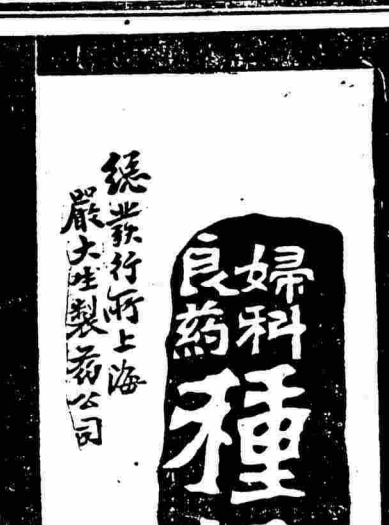 婦科
良药
種
總發行所上海
嚴大生製药公司